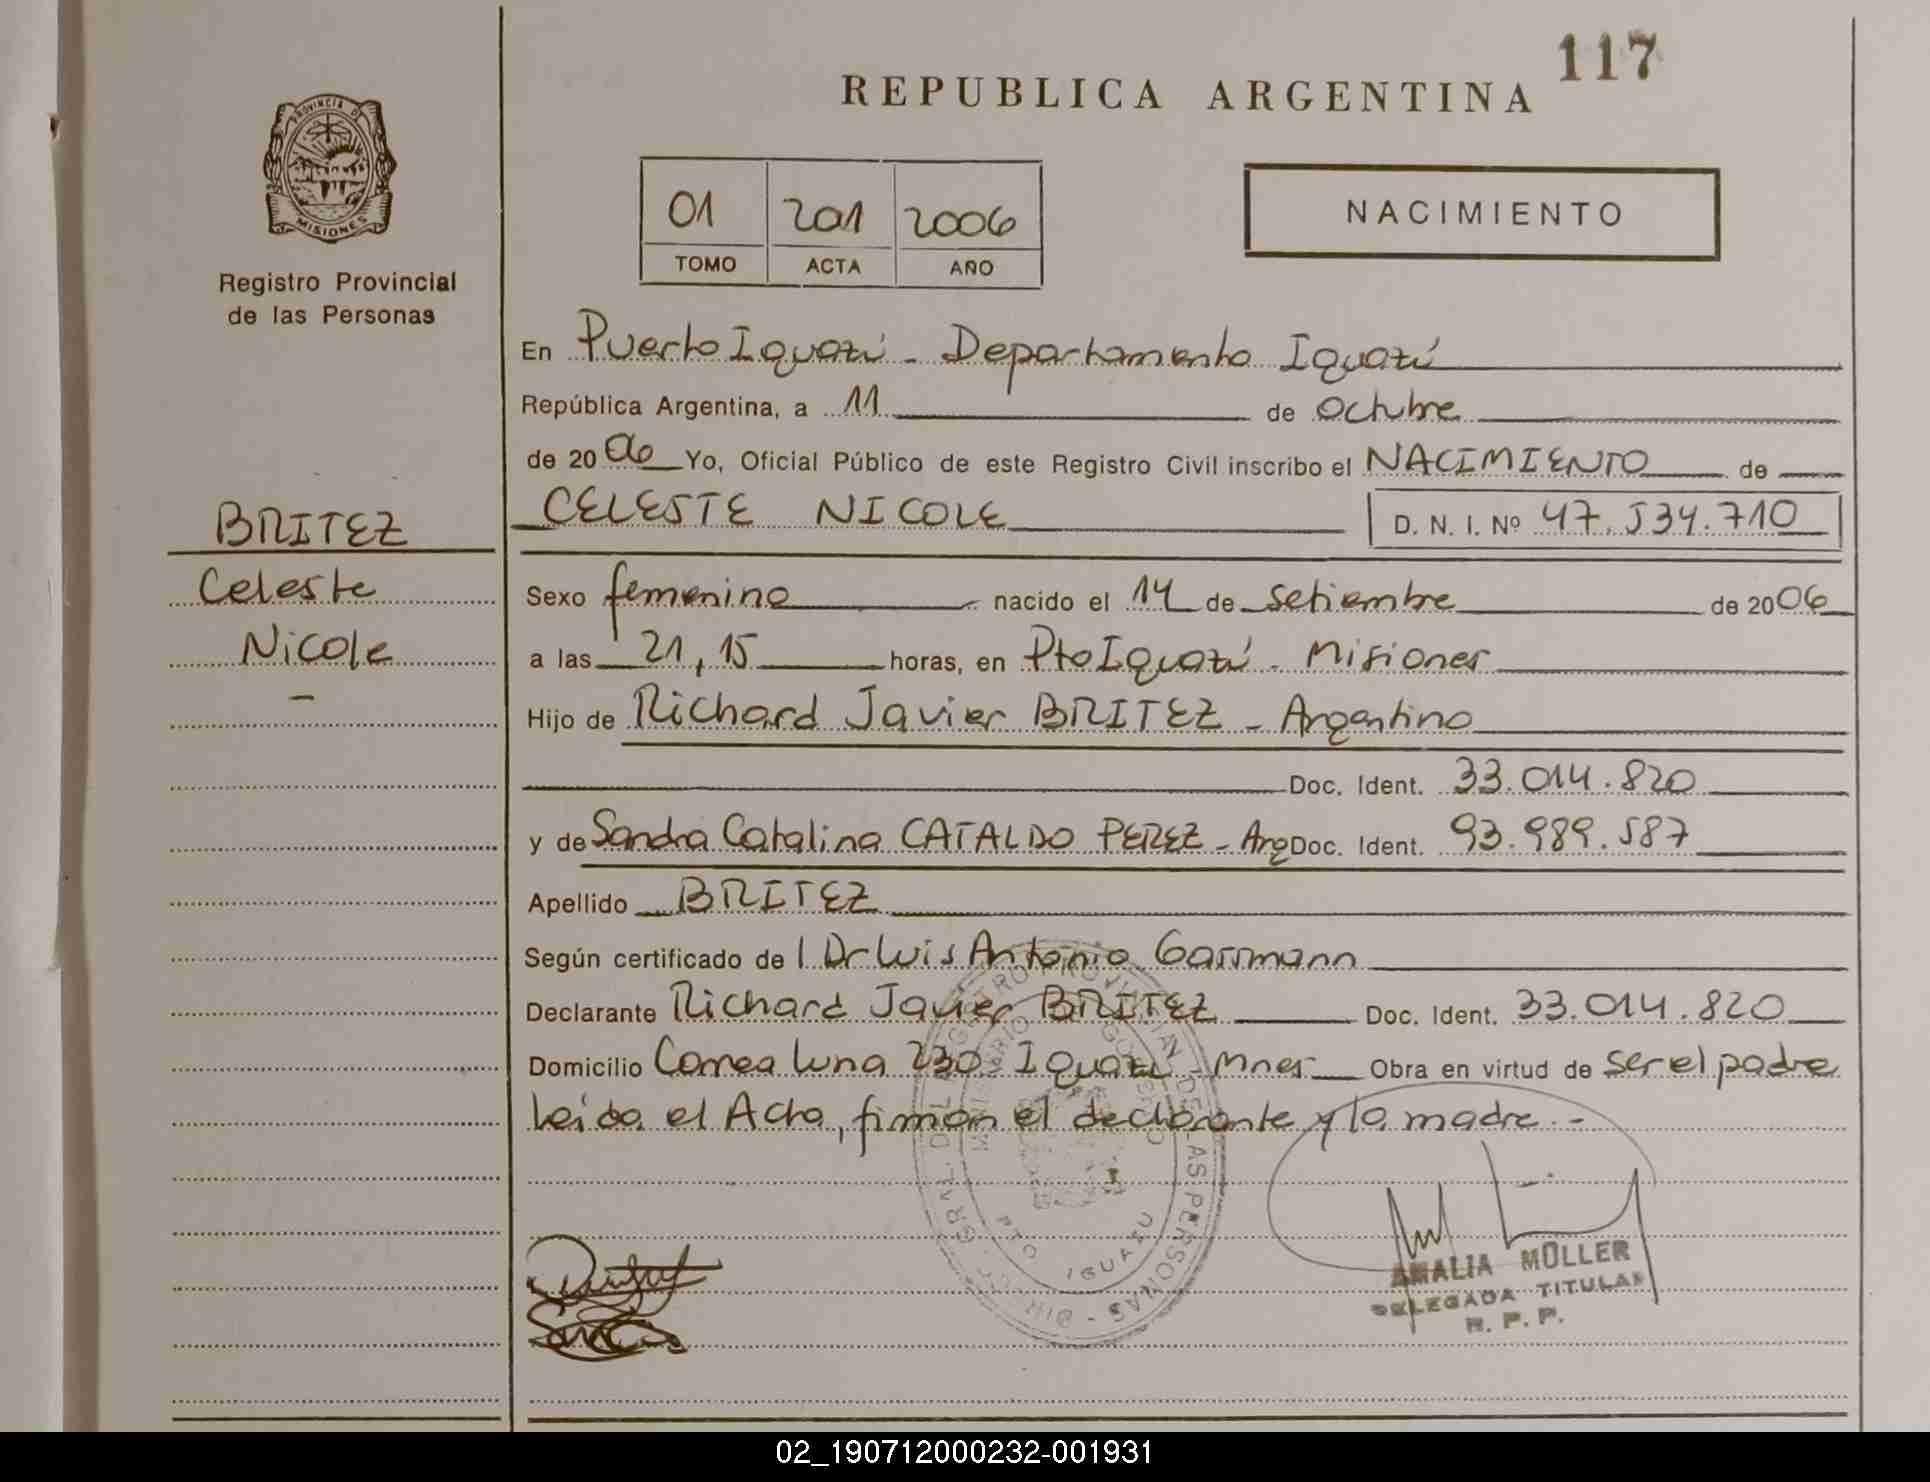 117
REPUBLICA ARGENTINA
PROVINCIA DE
MISIONES
Registro Provincial
de las Personas
01 201 2006
TOMO ACTA AÑO
NACIMIENTO
En Puerto Iguazú - Departamento Iguazú
República Argentina, a 11 de octubre
de 2006 Yo, Oficial Público de este Registro Civil inscribo el NACIMIENTO de
BRITEZ
Celeste
Nicole
-
CELESTE NICOLE D. N. I. Nº 47.534.710
Sexo femenino nacido el 14 de setiembre de 2006
a las 21,15 horas, en Pto Iguazú - Misiones
Hijo de Richard Javier BRITEZ - Argentino
Doc. Ident. 33.014.820
y de Sandra Catalina CATALDO PEREZ - Arg Doc. Ident. 93.989.587
Apellido BRITEZ
Según certificado de l Dr Luis Antonio Garrmann
Declarante Richard Javier BRITEZ Doc. Ident. 33.014.820
Domicilio Correa Luna 230 - Iguazú - Mnes Obra en virtud de ser el padre
Leída el Acta, firman el declarante y la madre.-
DIREC. GRAL. DEL REGISTRO PROVINCIAL DE LAS PERSONAS
MINISTERIO GOBIERNO
PTO IGUAZU
AMALIA MÜLLER
DELEGADA TITULAR
R. P. P.
02_190712000232-001931